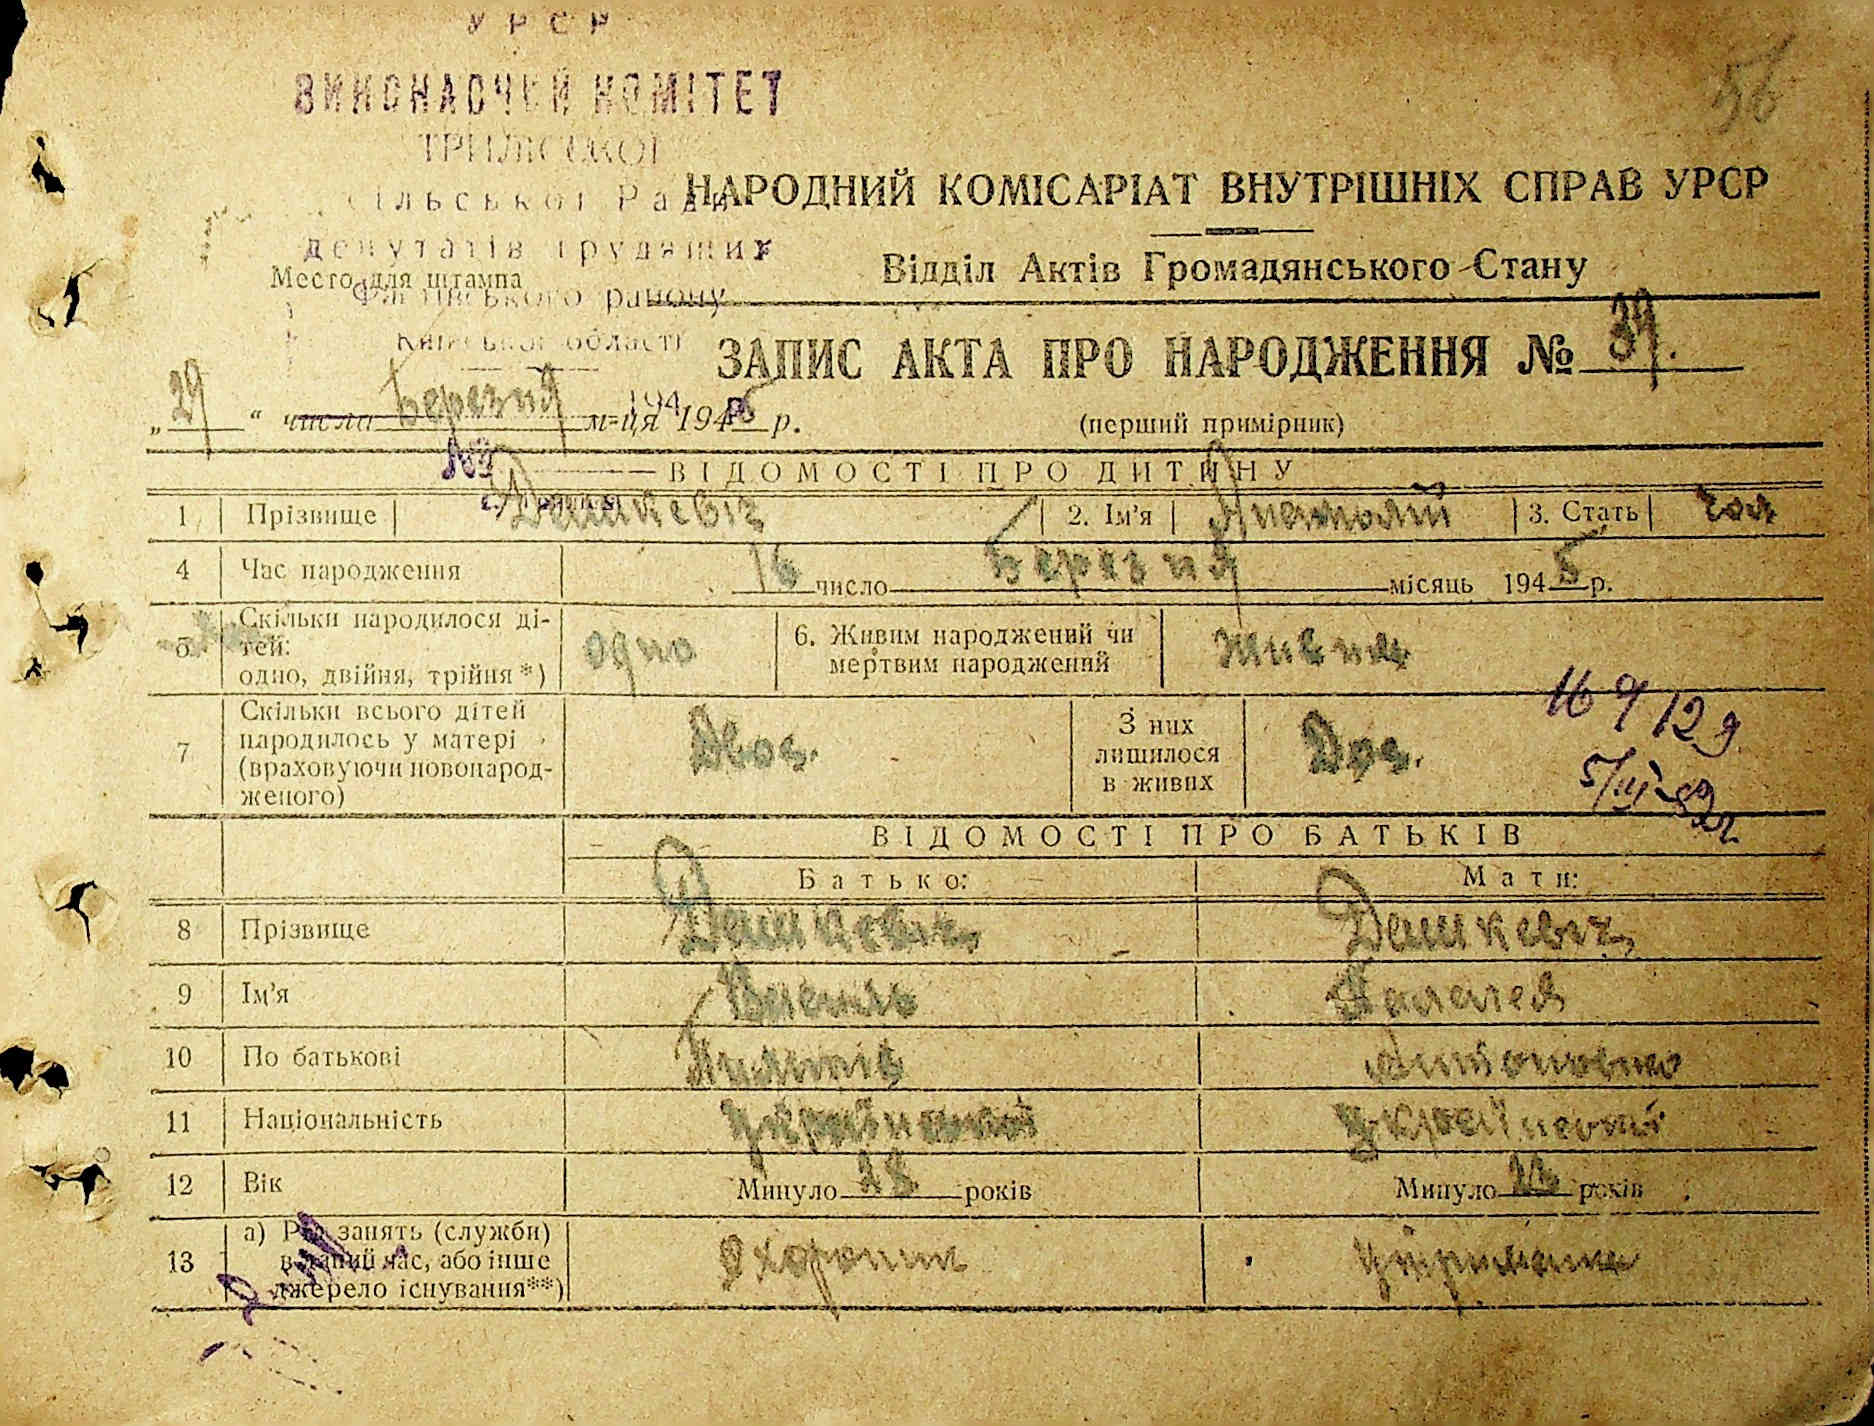 УРСР
56
ВИКОНАВЧИЙ КОМІТЕТ
ТРИЛІСЬКОЇ
сільської Ради
НАРОДНИЙ КОМІСАРІАТ ВНУТРІШНІХ СПРАВ УРСР
депутатів трудящих
Место для штампа
Відділ Актів Громадянського Стану
Фастівського району
Київської області
ЗАПИС АКТА ПРО НАРОДЖЕННЯ № 39.
„29“ числа Березня м-ця 1945 р.
194 р.
(перший примірник)
№
ВІДОМОСТІ ПРО ДИТИНУ
1 Прізвище Дашкевіч 2. Ім'я Анатолій 3. Стать чол
4 Час народження 16 число Березня місяць 1945 р.
5 Скільки народилося ді-
тей:
одно, двійня, трійня *) одно 6. Живим народжений чи
мертвим народжений живим
7 Скільки всього дітей
народилось у матері
(враховуючи новонарод-
женого) Двоє. З них
лишилося
в живих Двоє.
5/III-
ВІДОМОСТІ ПРО БАТЬКІВ
Батько: Мати:
8 Прізвище Дашкевіч Дашкевіч
9 Ім'я Василь Палагея
10 По батькові Антоновна
11 Національність
12 Вік Минуло 28 років Минуло років
13 а) Рід занять (служби)
в даний час, або інше
джерело існування**) Охороник утриманка